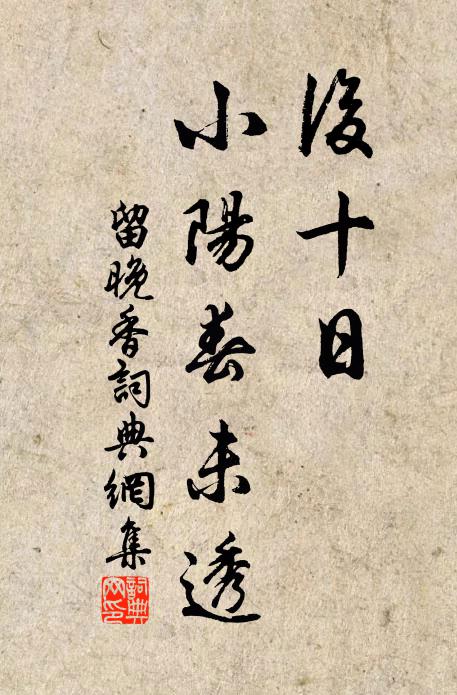 後十日
小陽春未透
留晚香詞典網集
詞典
网印